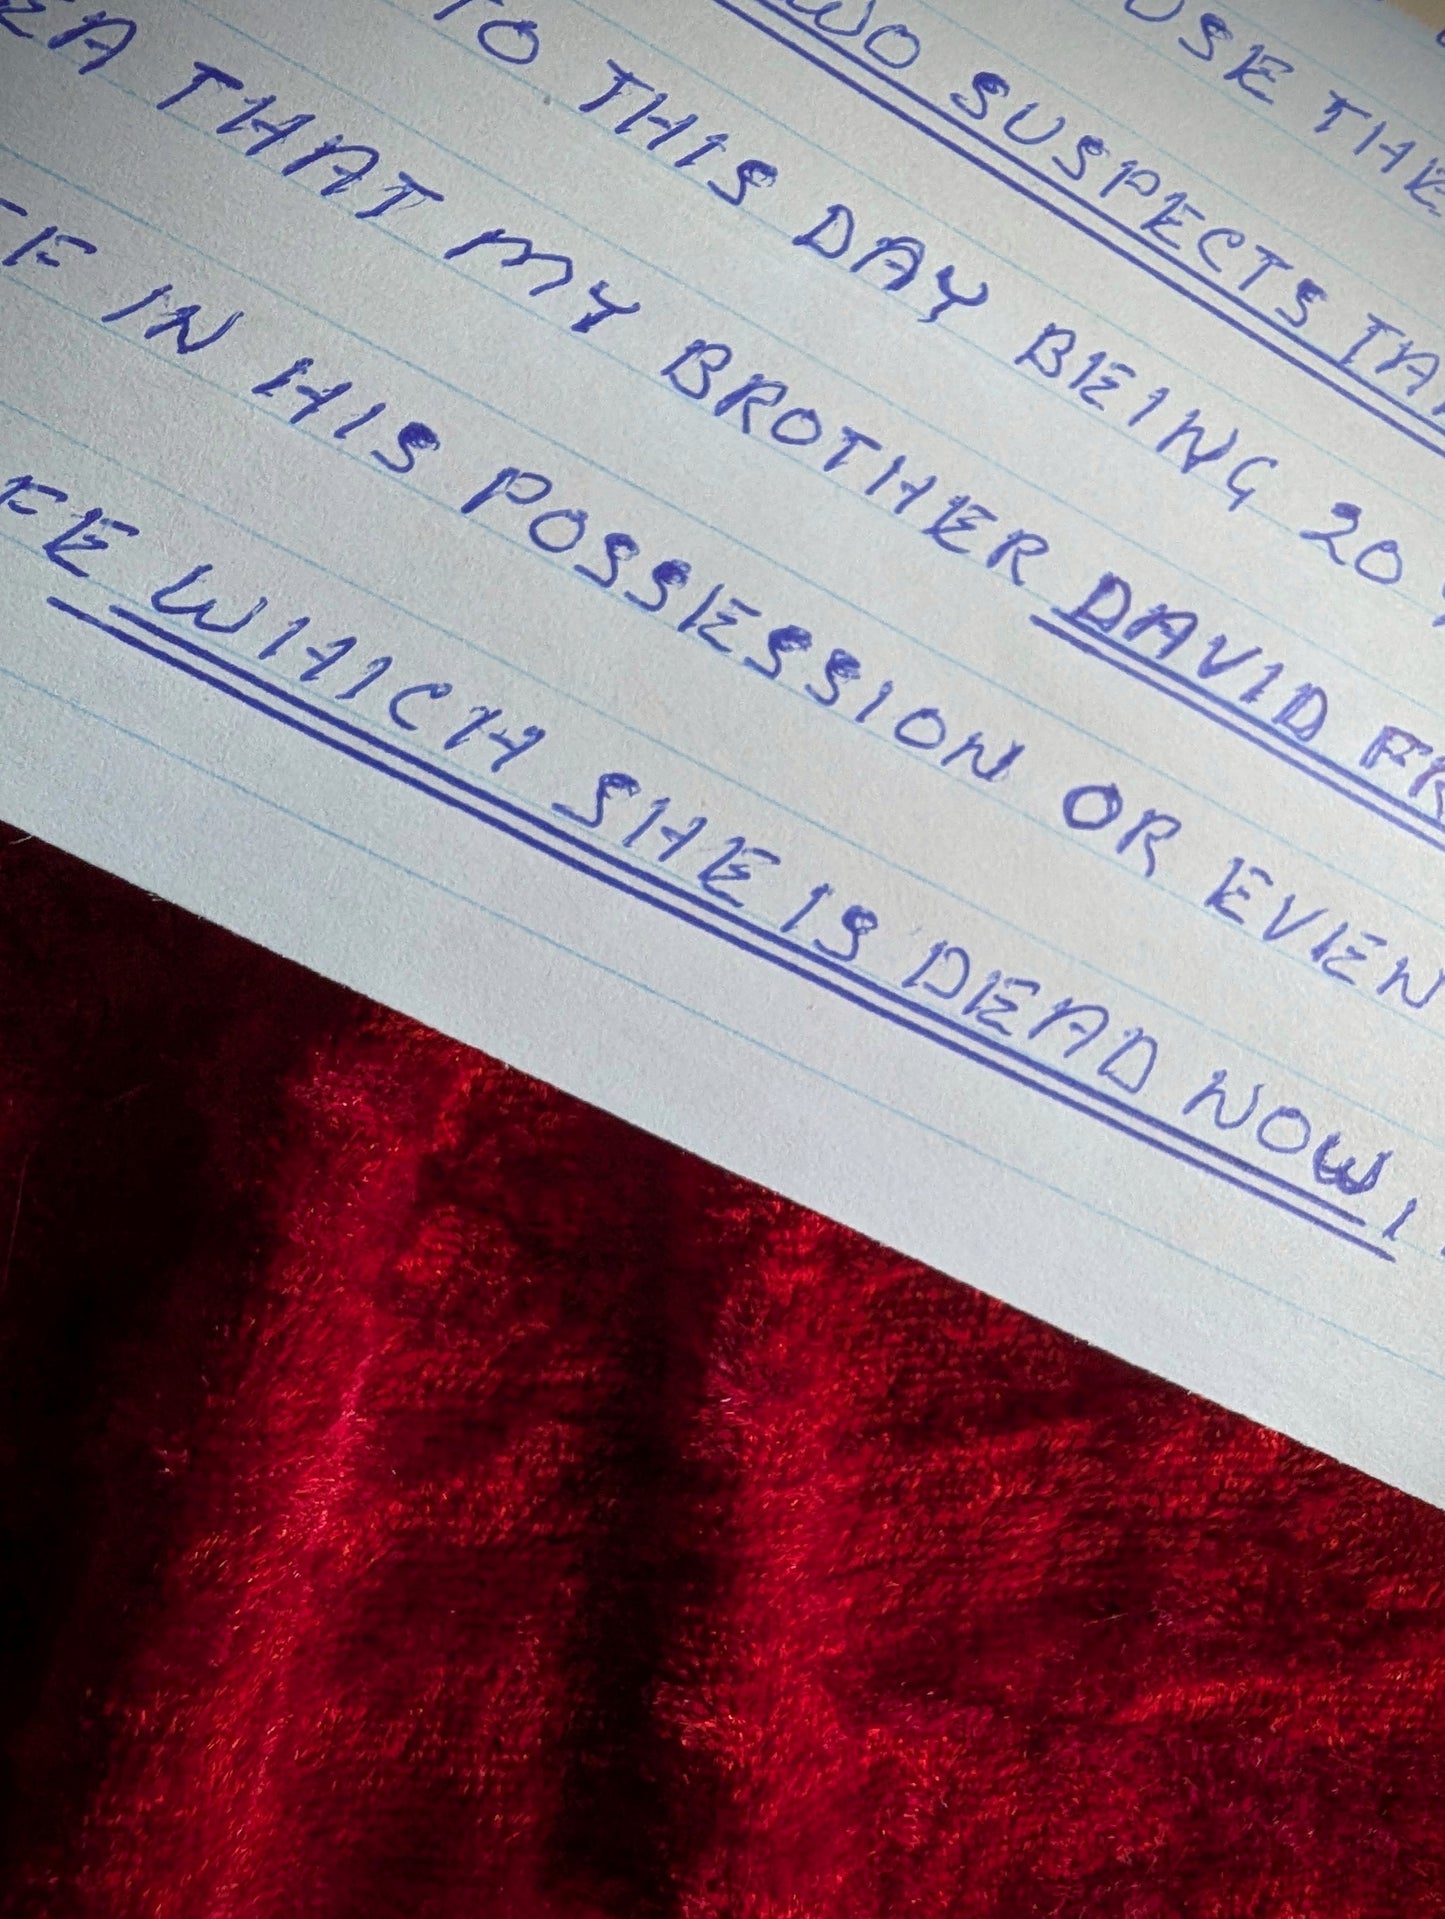 USE THE
TWO SUSPECTS TA
TO THIS DAY BEING 20
THAT MY BROTHER DAVID FR
IN HIS POSSESSION OR EVIEN
WHICH SHE IS DEAD NOW!